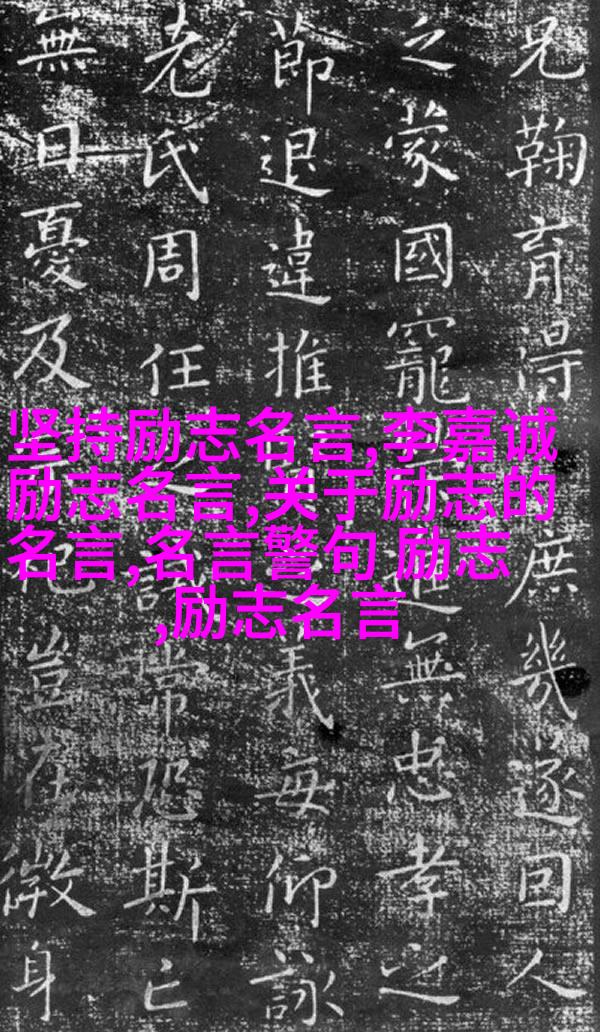 兄鞠育得庶幾遂回人
之蒙國寵進無忠孝之
節退違推義毎仰詠
老氏周任誡常恐斯亡
無日憂及祀豈在微身
坚持励志名言,李嘉诚
励志名言,关于励志的
名言,名言警句 励志
,励志名言